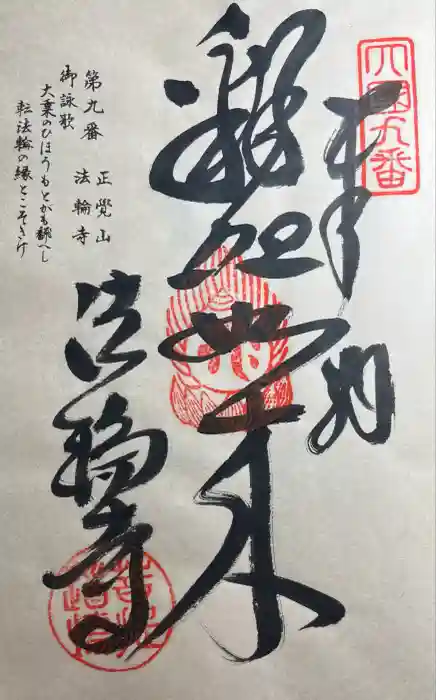 四國九番
奉納
釋迦如来
法輪寺
第九番 正覺山
御詠歌 法輪寺
大乗のひほうもとがも飜へし
転法輪の縁とこそきけ